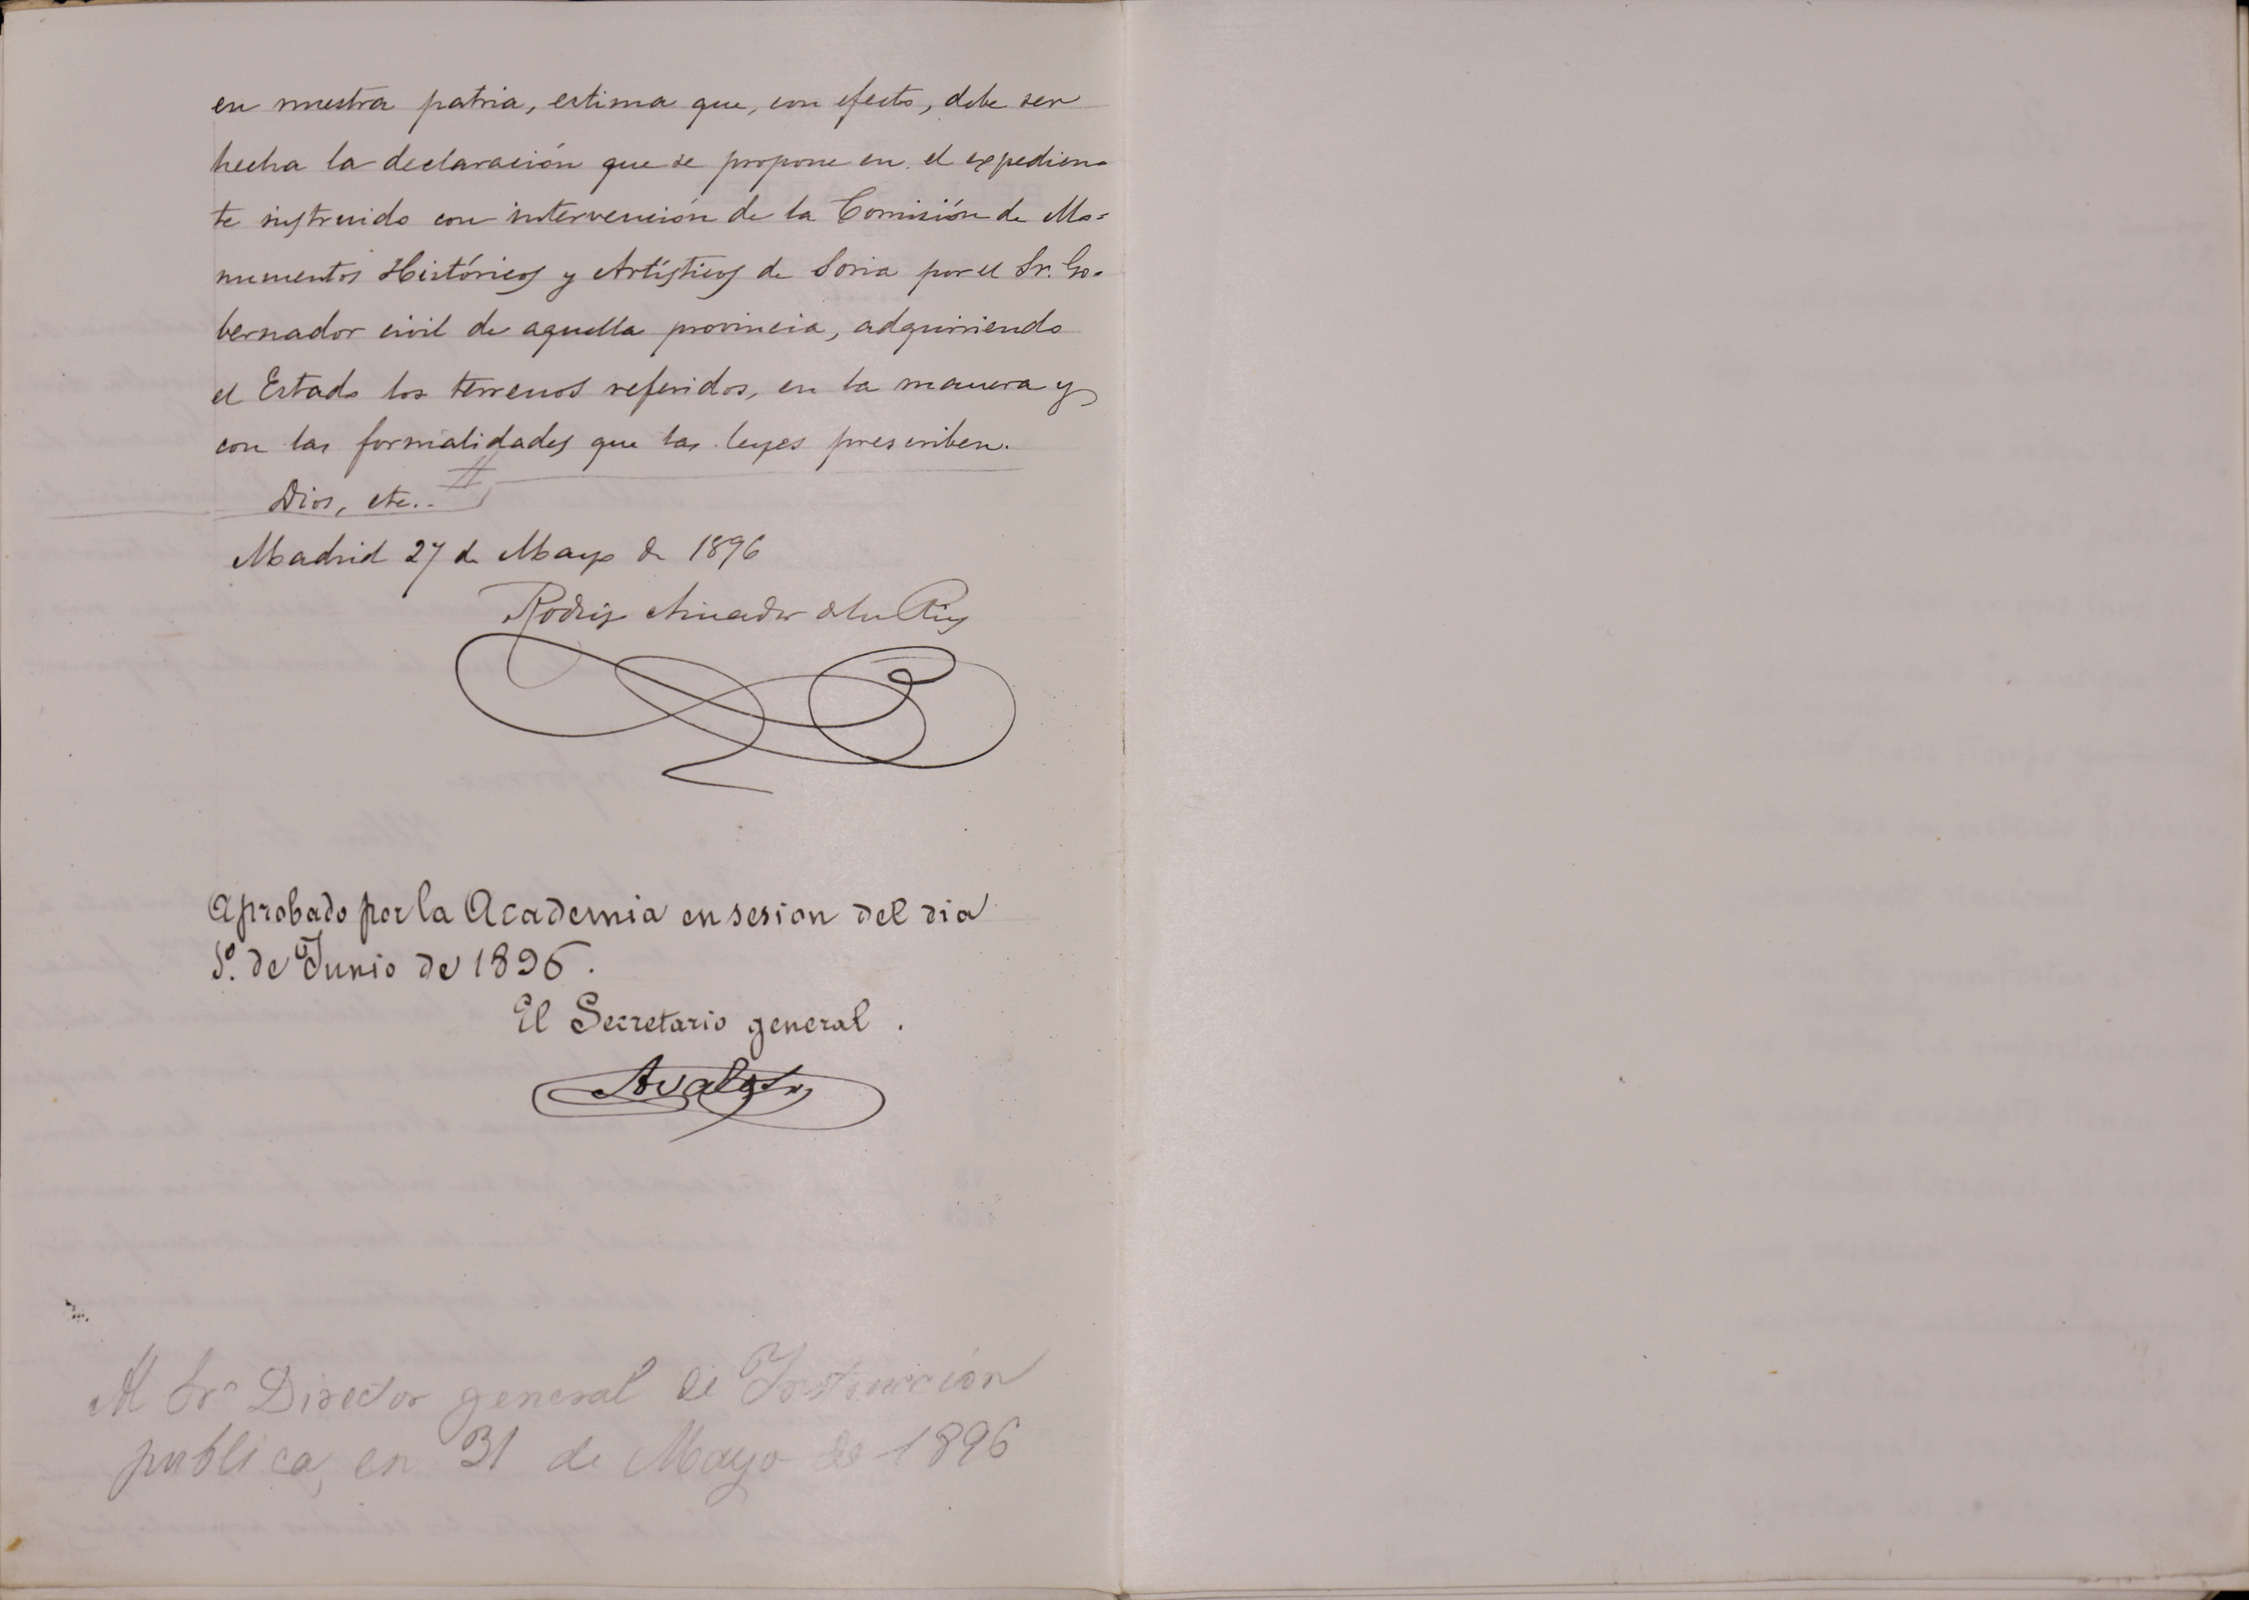 en nuestra patria, estima que, con efecto, debe ser
hecha la declaración que se propone en el expedien-
te instruido con intervención de la Comisión de Mo-
numentos Históricos y Artísticos de Soria por el Sr. Go-
bernador civil de aquella provincia, adquiriendo
el Estado los terrenos referidos, en la manera y
con las formalidades que las leyes prescriben.
Dios, etc..
Madrid 27 de Mayo de 1896
Rodrigo Amador de los Rios
Aprobado por la Academia en sesion del dia
1º. de Junio de 1896.
El Secretario general.
Avalos
Al Sr. Director general de Instrucción
publica, en 31 de Mayo de 1896